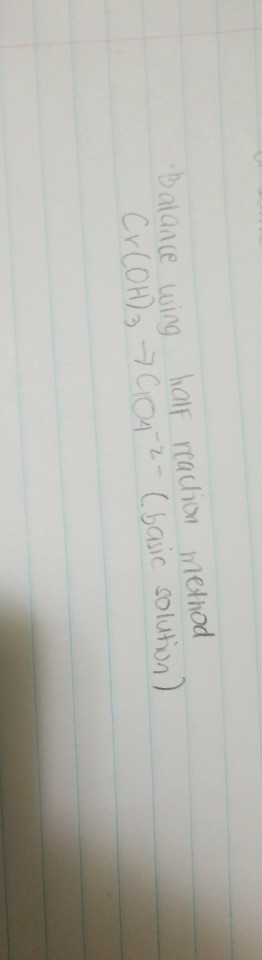 Balance using half reaction method
Cr(OH)3 → CrO4^-2- (basic solution)